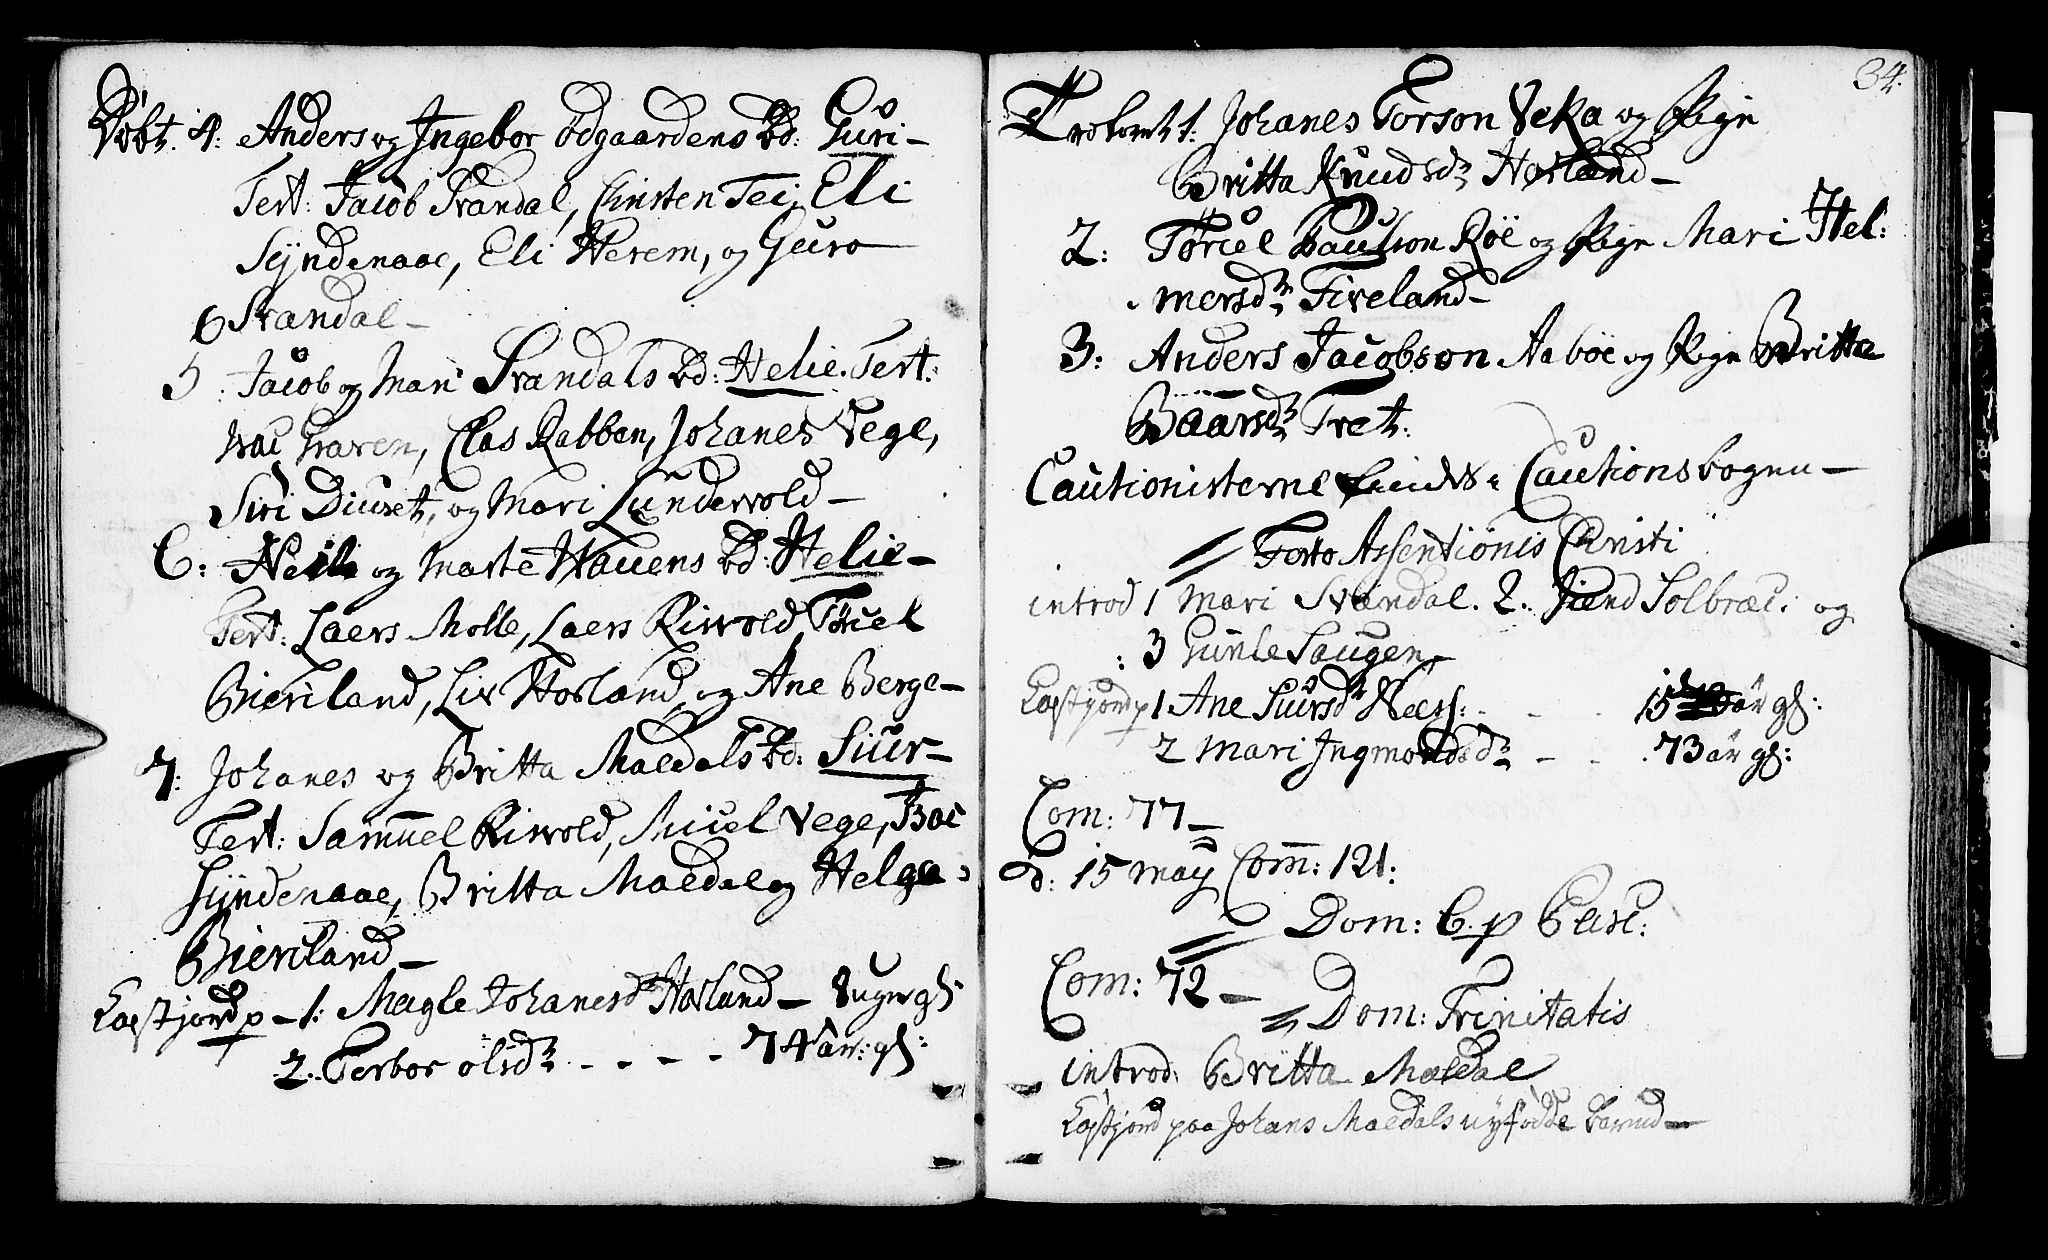 Döbt. 4: Anders og Ingebor Ödgaardens bd: Guri-
Test: Jacob Svandal, Christen Tei, Eli
Syndenaae, Eli Herem, og Guro
Svandal-
5: Jacob og Mari Svandals bd: Helie. Test:
Haven, Clas Rabben, Johanes Vege,
Siri Diuset, og Mari Lundevold-
6: Neils og Marte Hauens bd: Helie-
Test: Laers Molle, Laers Rivold Törcel
Biereland, Liv Hosland, og Ane Berge-
7: Johanes og Britta Maedals bd: Siur-
Test: Samuel Rivold, Micel Vege, Isac
Syndenaae, Britta Maedal og Helga
Biereland-
Kastjord p - 1: Magle Johanesdr Hosland- 8 uger gl:
2. Terbor olsdr - - - - 74 aar: gl:
34.
Trolovet 1: Johanes Torson Veka og Pige
Britta Knudsdr Hosland-
2: Törcel Paulson Röe og Pige Mari Hel:
mersdr Fiveland-
3: Anders Jacobson Aaböe og Pige Britta
Baarsdr Tret:
Cautionisterne findes i Cautionsbogen-
Festo Assentionis Christi
introd 1 Mari Svandal. 2: Solbrac: og
: 3 Gunle Haugen-
Kastjord p 1 Ane Siursdr Nees: - - - 15 aar gl:
2 Mari Ingmondsdr - - . 73 aar gl:
Com: 77-
d: 15 may Com: 121:
Dom: 6. p Pasc:
Com: 72-
Dom: Trinitatis
introd: Britta Maedal
Kastjord paa Johans Maedals nyfödde barnd-